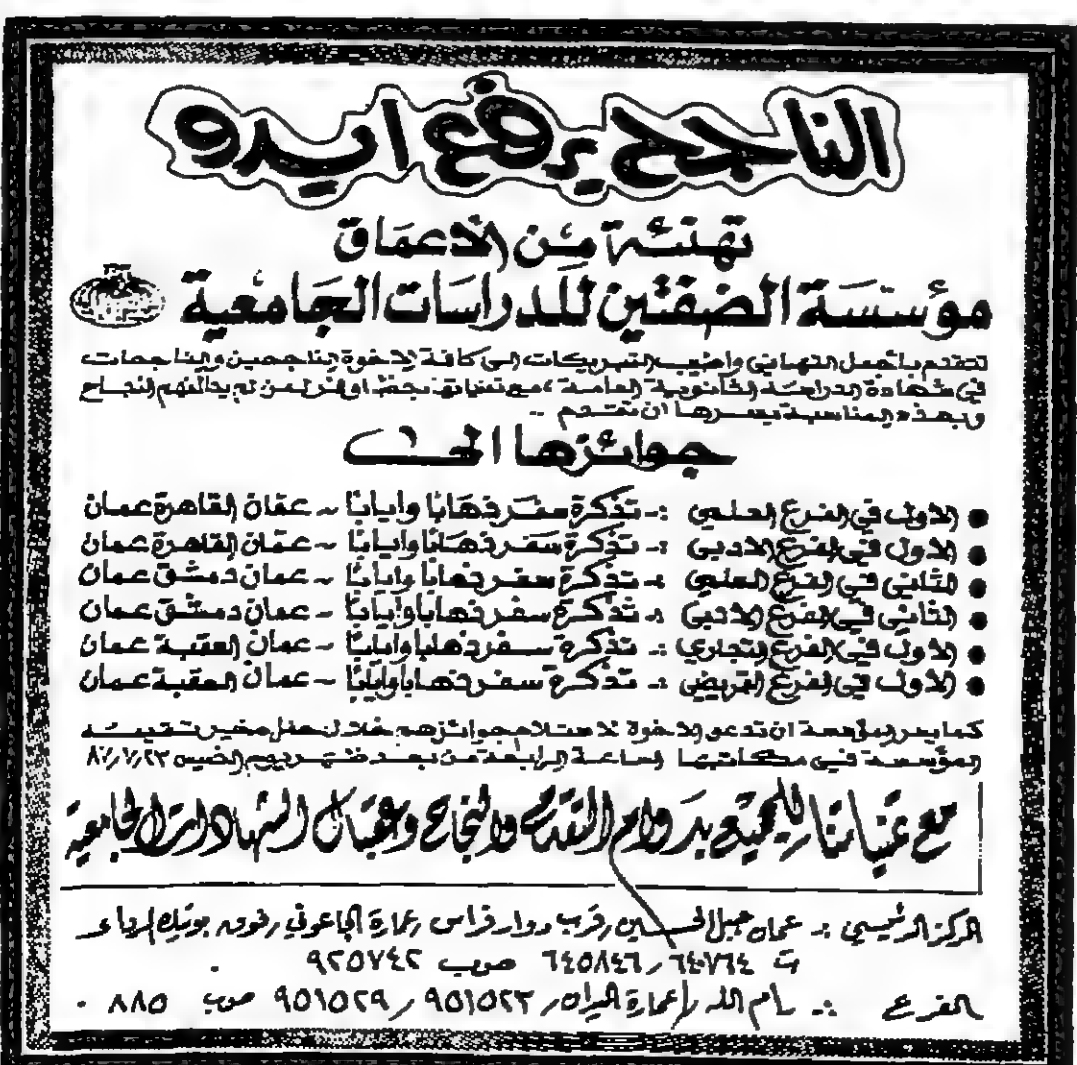 الناجح يرفع ايدو
تهنئة من الاعماق
مؤسسة الضفتين للدراسات الجامعية
تتقدم باجمل التهاني واطيب التبريكات الى كافة الاخوة الناجحين والناجحات
في شهادة الدراسة الثانوية العامة ، مع تمنياتها بحظ اوفر لمن لم يحالفهم النجاح
وبهذه المناسبة يسرها ان تقدم ..
جوائزها الى
● الاول في الفرع العلمي :- تذكرة سفر ذهابا وايابا - عمان القاهرة عمان
● الاول في الفرع الادبي :- تذكرة سفر ذهابا وايابا - عمان القاهرة عمان
● الثاني في الفرع العلمي :- تذكرة سفر ذهابا وايابا - عمان دمشق عمان
● الثاني في الفرع الادبي :- تذكرة سفر ذهابا وايابا - عمان دمشق عمان
● الاول في الفرع التجاري :- تذكرة سفر ذهابا وايابا - عمان العقبة عمان
● الاول في الفرع التمريضي :- تذكرة سفر ذهابا وايابا - عمان العقبة عمان
كما يسر المؤسسة ان تدعو الاخوة لاستلام جوائزهم خلال حفل صغير تقيمه
المؤسسة في مكاتبها الساعة الرابعة من بعد ظهر يوم الخميس ٨٧/٧/٢٣
مع تمنياتنا للجميع بدوام التقدم والنجاح وعقبال الشهادات الجامعية
المركز الرئيسي :- عمان جبل الحسين / قرب دوار فراس / عمارة الجاعوني / فوق بوتيك
ت ٦٤٠٧٦٤ / ٦٤٥٨٤٦ ص.ب ٩٢٥٧٤٢
الفرع :- رام الله / عمارة / ٩٥١٥٢٣ / ٩٥١٥٢٩ ص.ب ٨٨٥